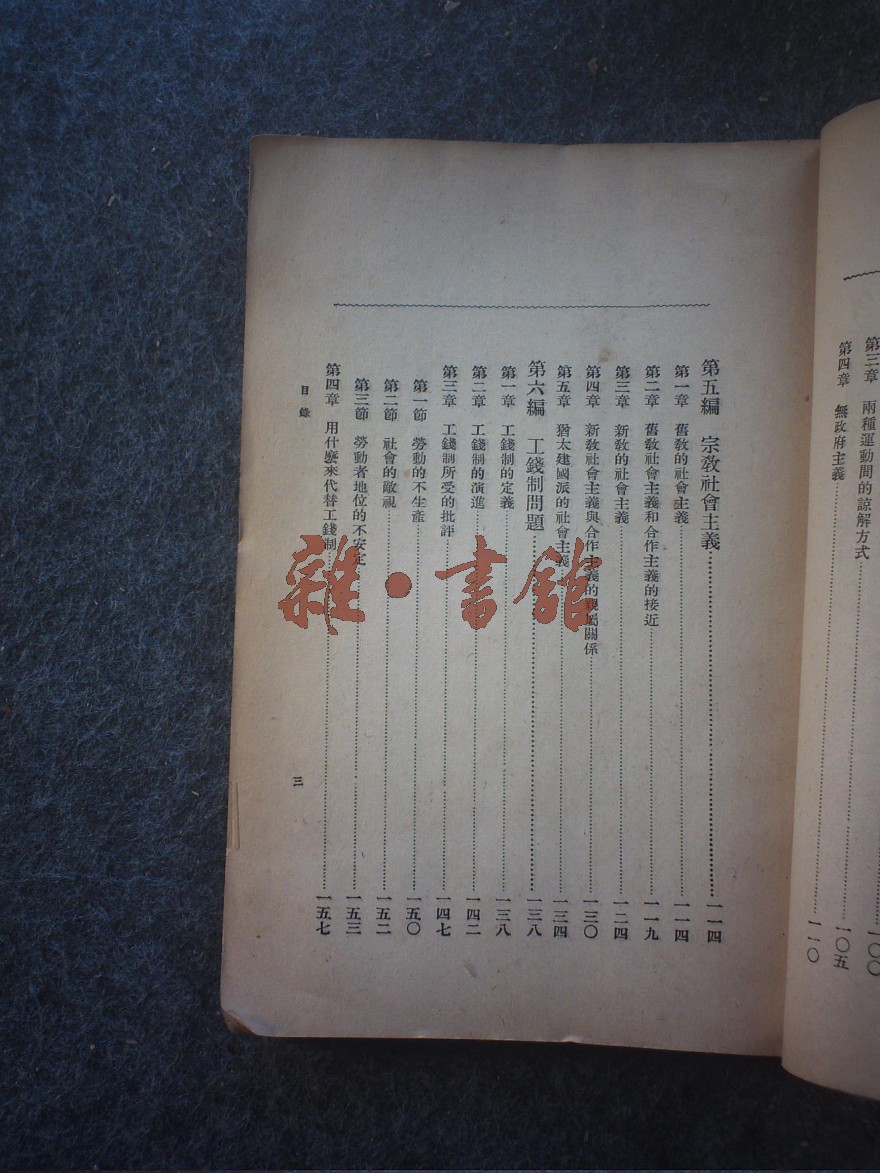 一〇〇
第三章 兩種運動間的諒解方式 一〇五
第四章 無政府主義 一一〇
第五編 宗敎社會主義 一一四
第一章 舊敎的社會主義 一一四
第二章 舊敎社會主義和合作主義的接近 一一九
第三章 新敎的社會主義 一二四
第四章 新敎社會主義與合作主義的親屬關係 一三〇
第五章 猶太建國派的社會主義 一三四
第六編 工錢制問題 一三八
第一章 工錢制的定義 一三八
第二章 工錢制的演進 一四二
第三章 工錢制所受的批評 一四七
第一節 勞動的不生產 一五〇
第二節 社會的敵視 一五二
第三節 勞動者地位的不安定 一五三
第四章 用什麼來代替工錢制 一五七
目錄
三
雜·書館